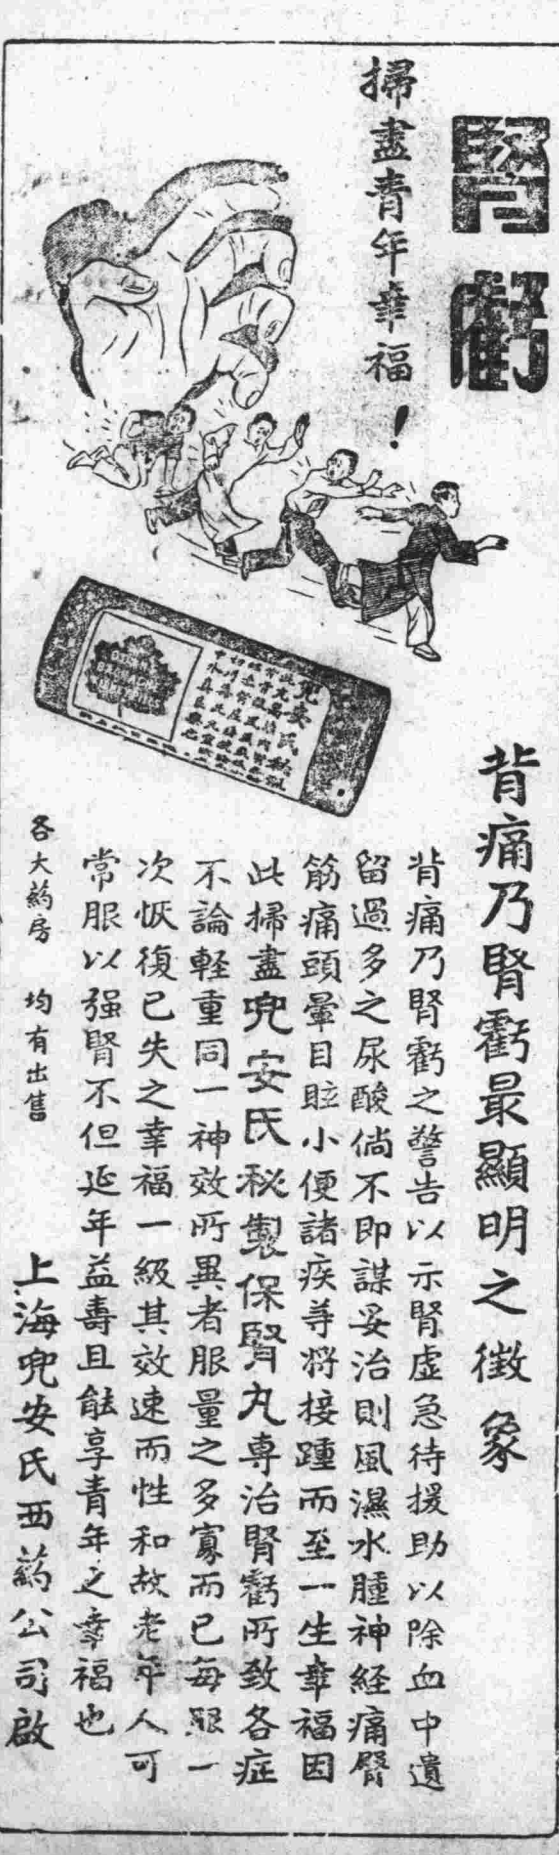 腎虧
掃盡青年幸福！
兜安氏秘製
背痛乃腎虧最顯明之徴象
背痛乃腎虧之警告以示腎虛急待援助以除血中遺
留過多之尿酸倘不即謀妥治則風濕水腫神経痛腎
筋痛頭暈目眩小便諸疾等將接踵而至一生幸福因
此掃盡兜安氏秘製保腎丸専治腎虧所致各症
不論軽重同一神效所異者服量之多寡而已每服一
次恢復已失之幸福一級其效速而性和故老年人可
常服以强腎不但延年益壽且能享青年之幸福也
各大葯房 均有出售
上海兜安氏西葯公司啟